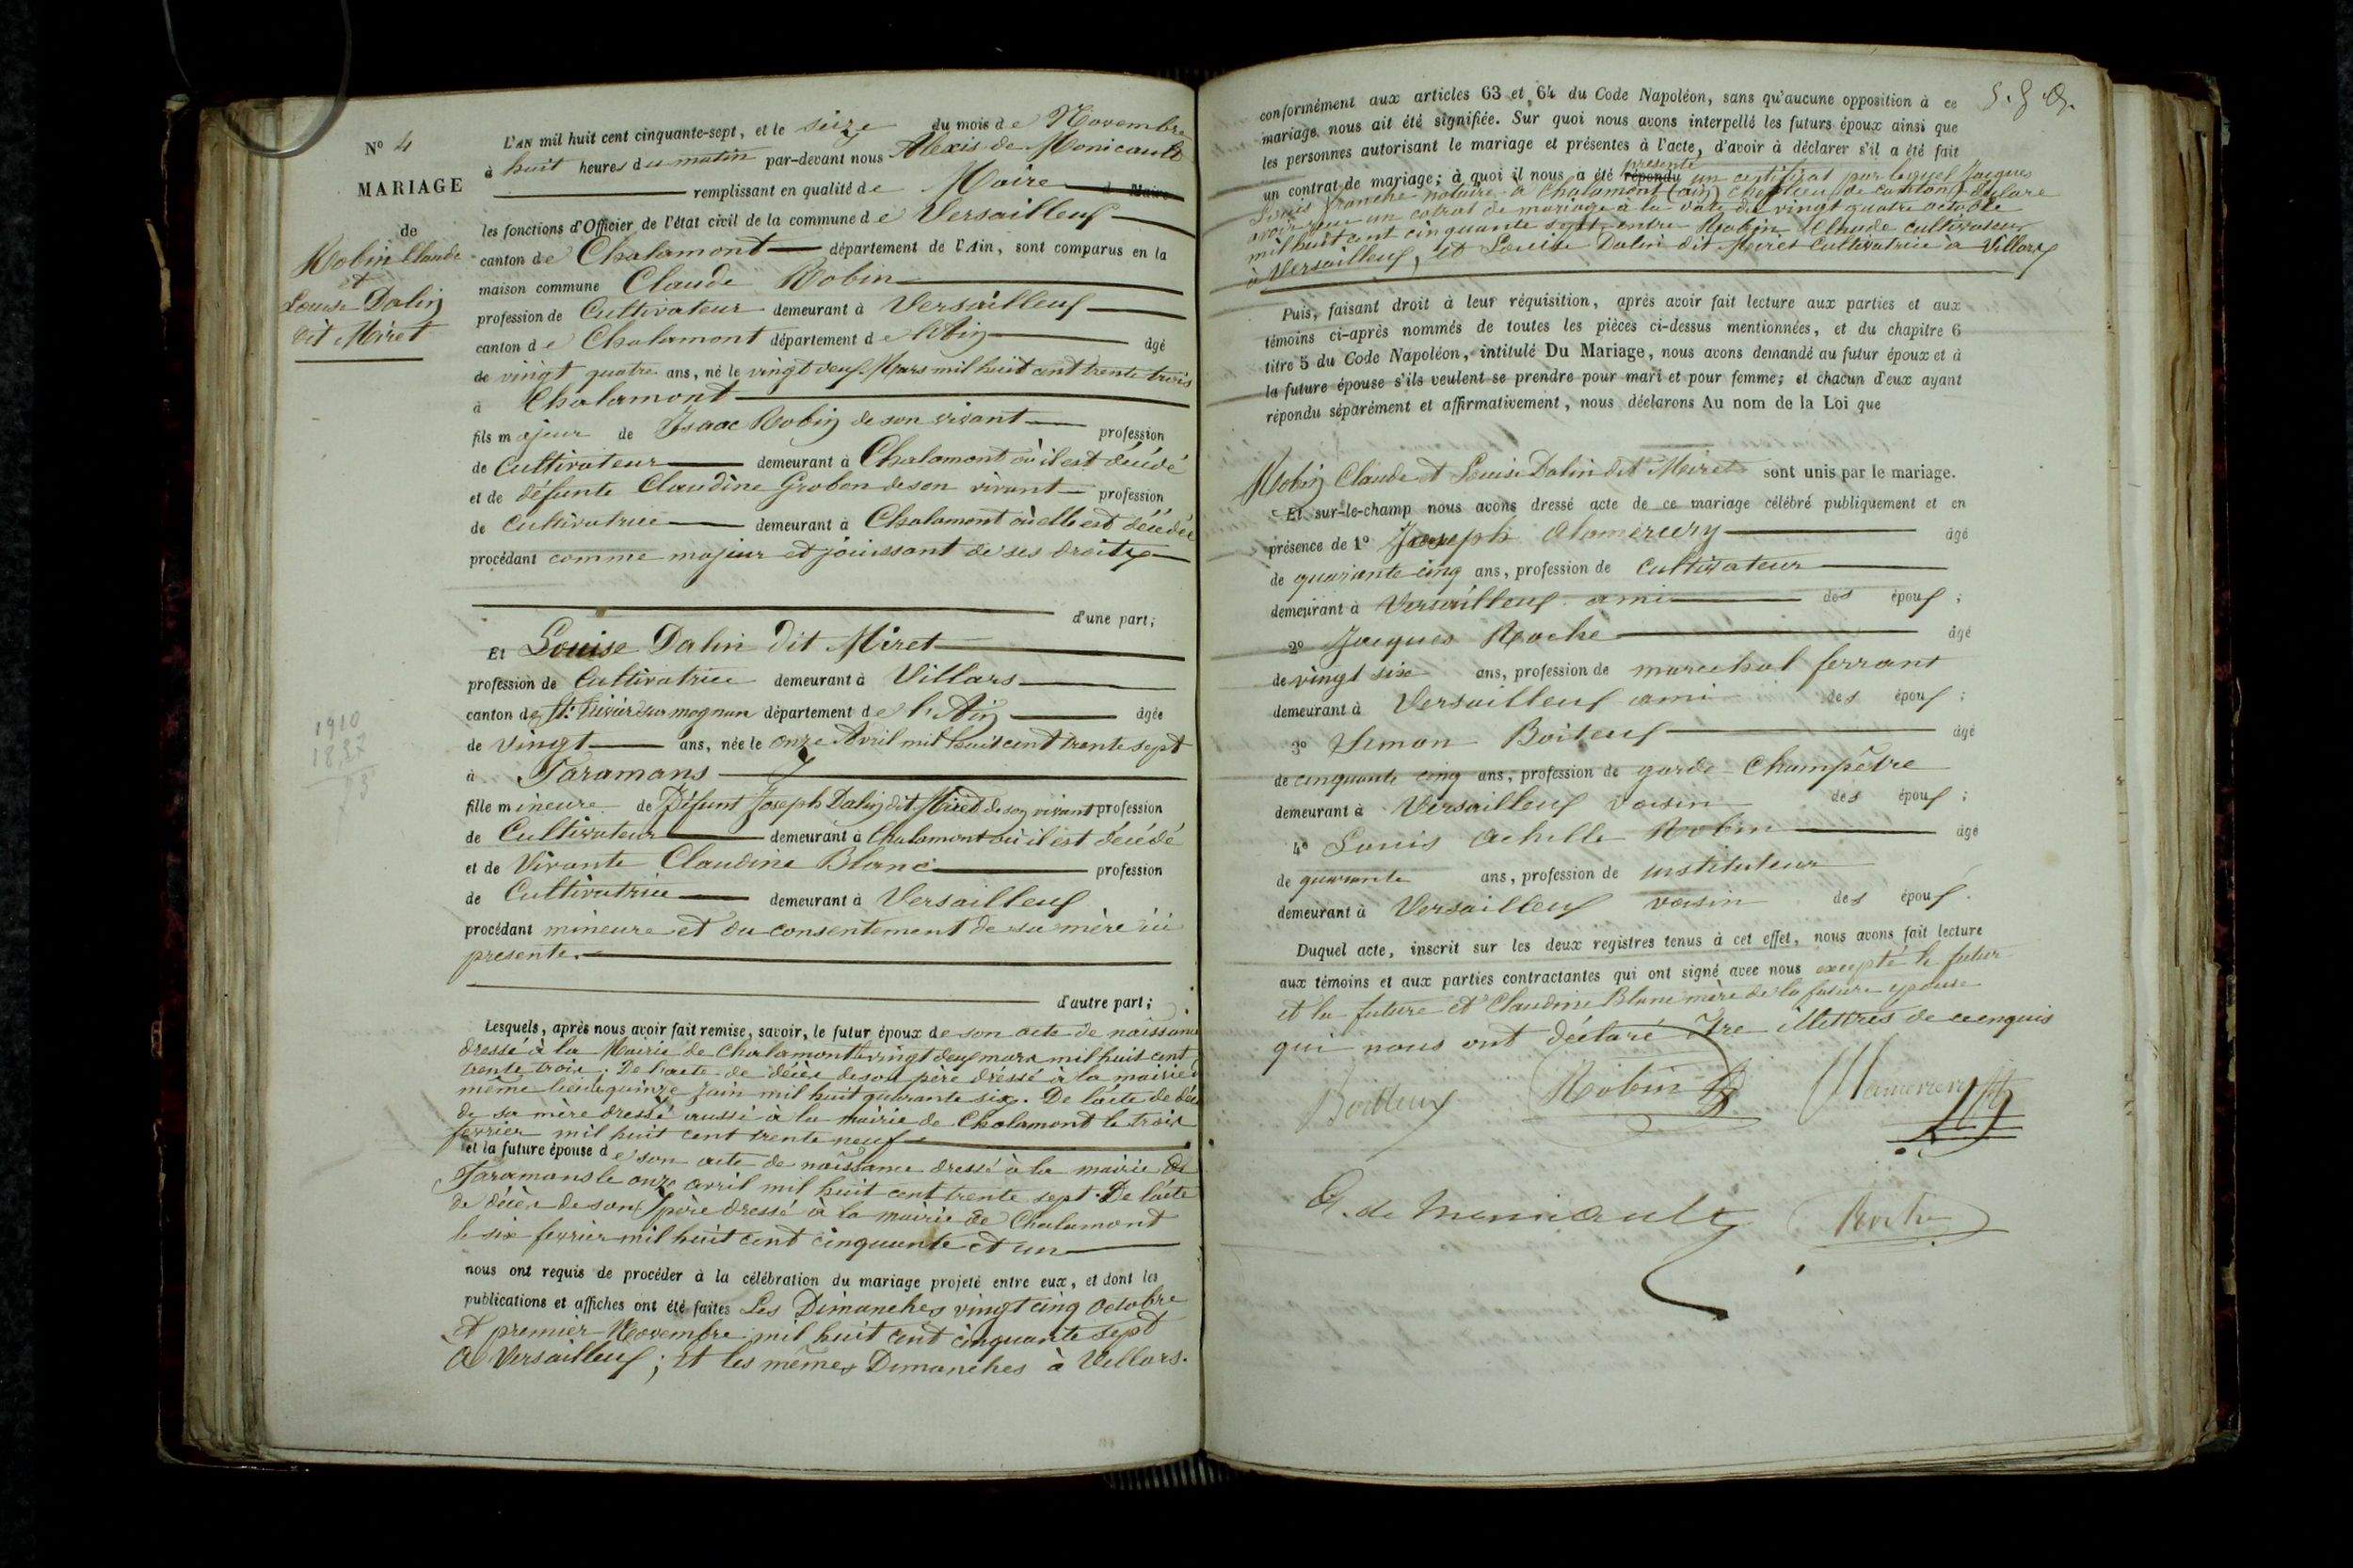 N° 4
MARIAGE
de
Robin Claude
et
Louise Dalin
dit Miret
1910
1837
73
L'AN mil huit cent cinquante-sept, et le seize du mois de Novembre
à huit heures du matin par-devant nous Alexis de Monicault
remplissant en qualité de Maire
les fonctions d'Officier de l'état civil de la commune de Versailleux
canton de Chalamont département de l'Ain, sont comparus en la
maison commune Claude Robin
profession de Cultivateur demeurant à Versailleux
canton de Chalamont département de l'Ain âgé
de vingt quatre ans, né le vingt deux Mars mil huit cent trente trois
à Chalamont
fils majeur de Isaac Robin de son vivant profession
de Cultivateur demeurant à Chalamont où il est décédé
et de défunte Claudine Grobon de son vivant profession
de Cultivatrice demeurant à Chalamont où elle est décédée
procédant comme majeur et jouissant de ses droits
d'une part;
Et Louise Dalin dit Miret
profession de Cultivatrice demeurant à Villars
canton de St. Trivier sur mognan département de l'Ain âgée
de vingt ans, née le onze Avril mil huit cent trente sept
à Faramans
fille mineure de Défunt Joseph Dalin dit Miret de son vivant profession
de Cultivateur demeurant à Chalamont où il est décédé
et de Vivante Claudine Blanc profession
de Cultivatrice demeurant à Versailleux
procédant mineure et du consentement de sa mère ici
presente.
d'autre part;
Lesquels, après nous avoir fait remise, savoir, le futur époux de son acte de naissance
dressé à la Mairie de Chalamont le vingt deux mars mil huit cent
trente trois. De l'acte de décès de son père dressé à la mairie d
même lieu le quinze Juin mil huit quarante six. De l'acte de déc
de sa mère dressé aussi à la mairie de Chalamont le trois
fevrier mil huit cent trente neuf
et la future épouse de son acte de naissance dressé à la mairie de
Faramans le onze avril mil huit cent trente sept. De l'acte
de décès de son père dressé à la mairie de Chalamont
le six fevrier mil huit cent cinquante et un
nous ont requis de procéder à la célébration du mariage projeté entre eux, et dont les
publications et affiches ont été faites Les Dimanches vingt cinq Octobre
et premier Novembre mil huit cent cinquante sept
à Versailleux; et les mêmes Dimanches à Villars.
conformément aux articles 63 et 64 du Code Napoléon, sans qu'aucune opposition à ce
mariage nous ait été signifiée. Sur quoi nous avons interpellé les futurs époux ainsi que
les personnes autorisant le mariage et présentes à l'acte, d'avoir à déclarer s'il a été fait
presenté
un contrat de mariage; à quoi il nous a été répondu un certificat par lequel Jacques
Louis Franche notaire à Chalamont (ain) chef lieu de canton, déclare
avoir un cotrat de mariage à la date du vingt quatre octobre
mil huit cent cinquante sept entre Robin Claude cultivateur
à Versailleux, et Louise Dalin dit Miret Cultivatrice à Villars
Puis, faisant droit à leur réquisition, après avoir fait lecture aux parties et aux
témoins ci-après nommés de toutes les pièces ci-dessus mentionnées, et du chapitre 6
titre 5 du Code Napoléon, intitulé Du Mariage, nous avons demandé au futur époux et à
la future épouse s'ils veulent se prendre pour mari et pour femme; et chacun d'eux ayant
répondu séparément et affirmativement, nous déclarons Au nom de la Loi que
Robin Claude et Louise Dalin dit Miret sont unis par le mariage.
Et sur-le-champ nous avons dressé acte de ce mariage célébré publiquement et en
présence de 1° Joseph Alamercery âgé
de quarante cinq ans, profession de Cultivateur
demeurant à Versailleux ami des époux;
2° Jacques Roche âgé
de vingt six ans, profession de marechal ferrant
demeurant à Versailleux ami des époux;
3° Simon Boiteux âgé
de cinquante cinq ans, profession de garde Champêtre
demeurant à Versailleux voisin des époux;
4° Louis Achille Robin âgé
de quarante ans, profession de instituteur
demeurant à Versailleux voisin des époux.
Duquel acte, inscrit sur les deux registres tenus à cet effet, nous avons fait lecture
aux témoins et aux parties contractantes qui ont signé avec nous excepté le futur
et la future et Claudine Blanc mère de la future épouse
qui nous ont déclaré être illettrés de ce enquis
Boiteux Robin Alamercery
A. de Monicault Roche